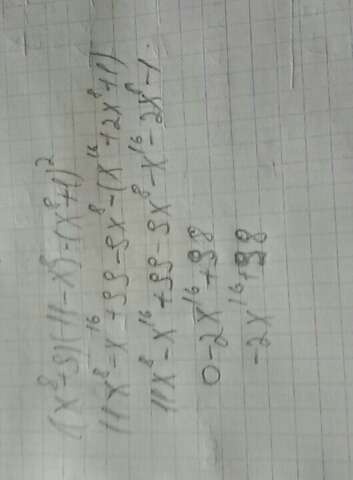 (x⁸+9)(11-x⁸)-(x⁸+1)²
11x⁸-x¹⁶+99-9x⁸-(x¹⁶+2x⁸+1)
11x⁸-x¹⁶+99-9x⁸-x¹⁶-2x⁸-1.
0-2x¹⁶+98
-2x¹⁶+98